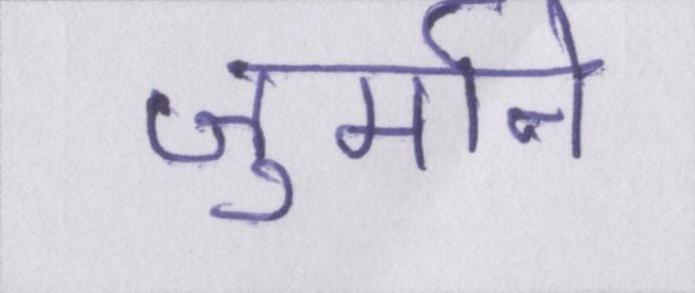 जुर्माने